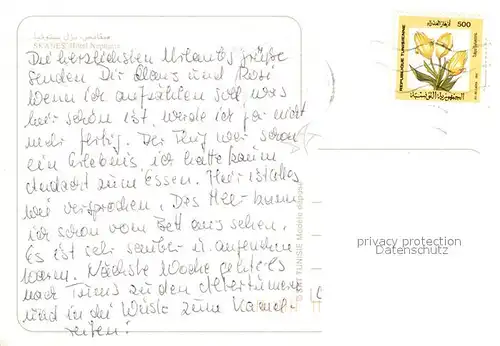 صقانس، نزل نبتونيا
SKANES Hôtel Neptunia
Die herzlichsten Urlaubsgrüße
senden Dir Claus und Rosi
Wenn ich aufzählen soll was
hier schön ist, werde ich gar nicht
mehr fertig. Der Flug war schon
ein Erlebnis ich hatte kaum
Andacht zum Essen. Hier ist alles
wie versprochen. Das Meer kann
ich schon vom Bett aus sehen.
Es ist sehr sauber u. angenehm
warm. Nächste Woche geht es
nach Tunis zu den Altertümern
und in die Wüste zum Kamel-
reiten!
TUNISIE Modèle déposé
REPUBLIQUE TUNISIENNE
500
privacy protection
Datenschutz